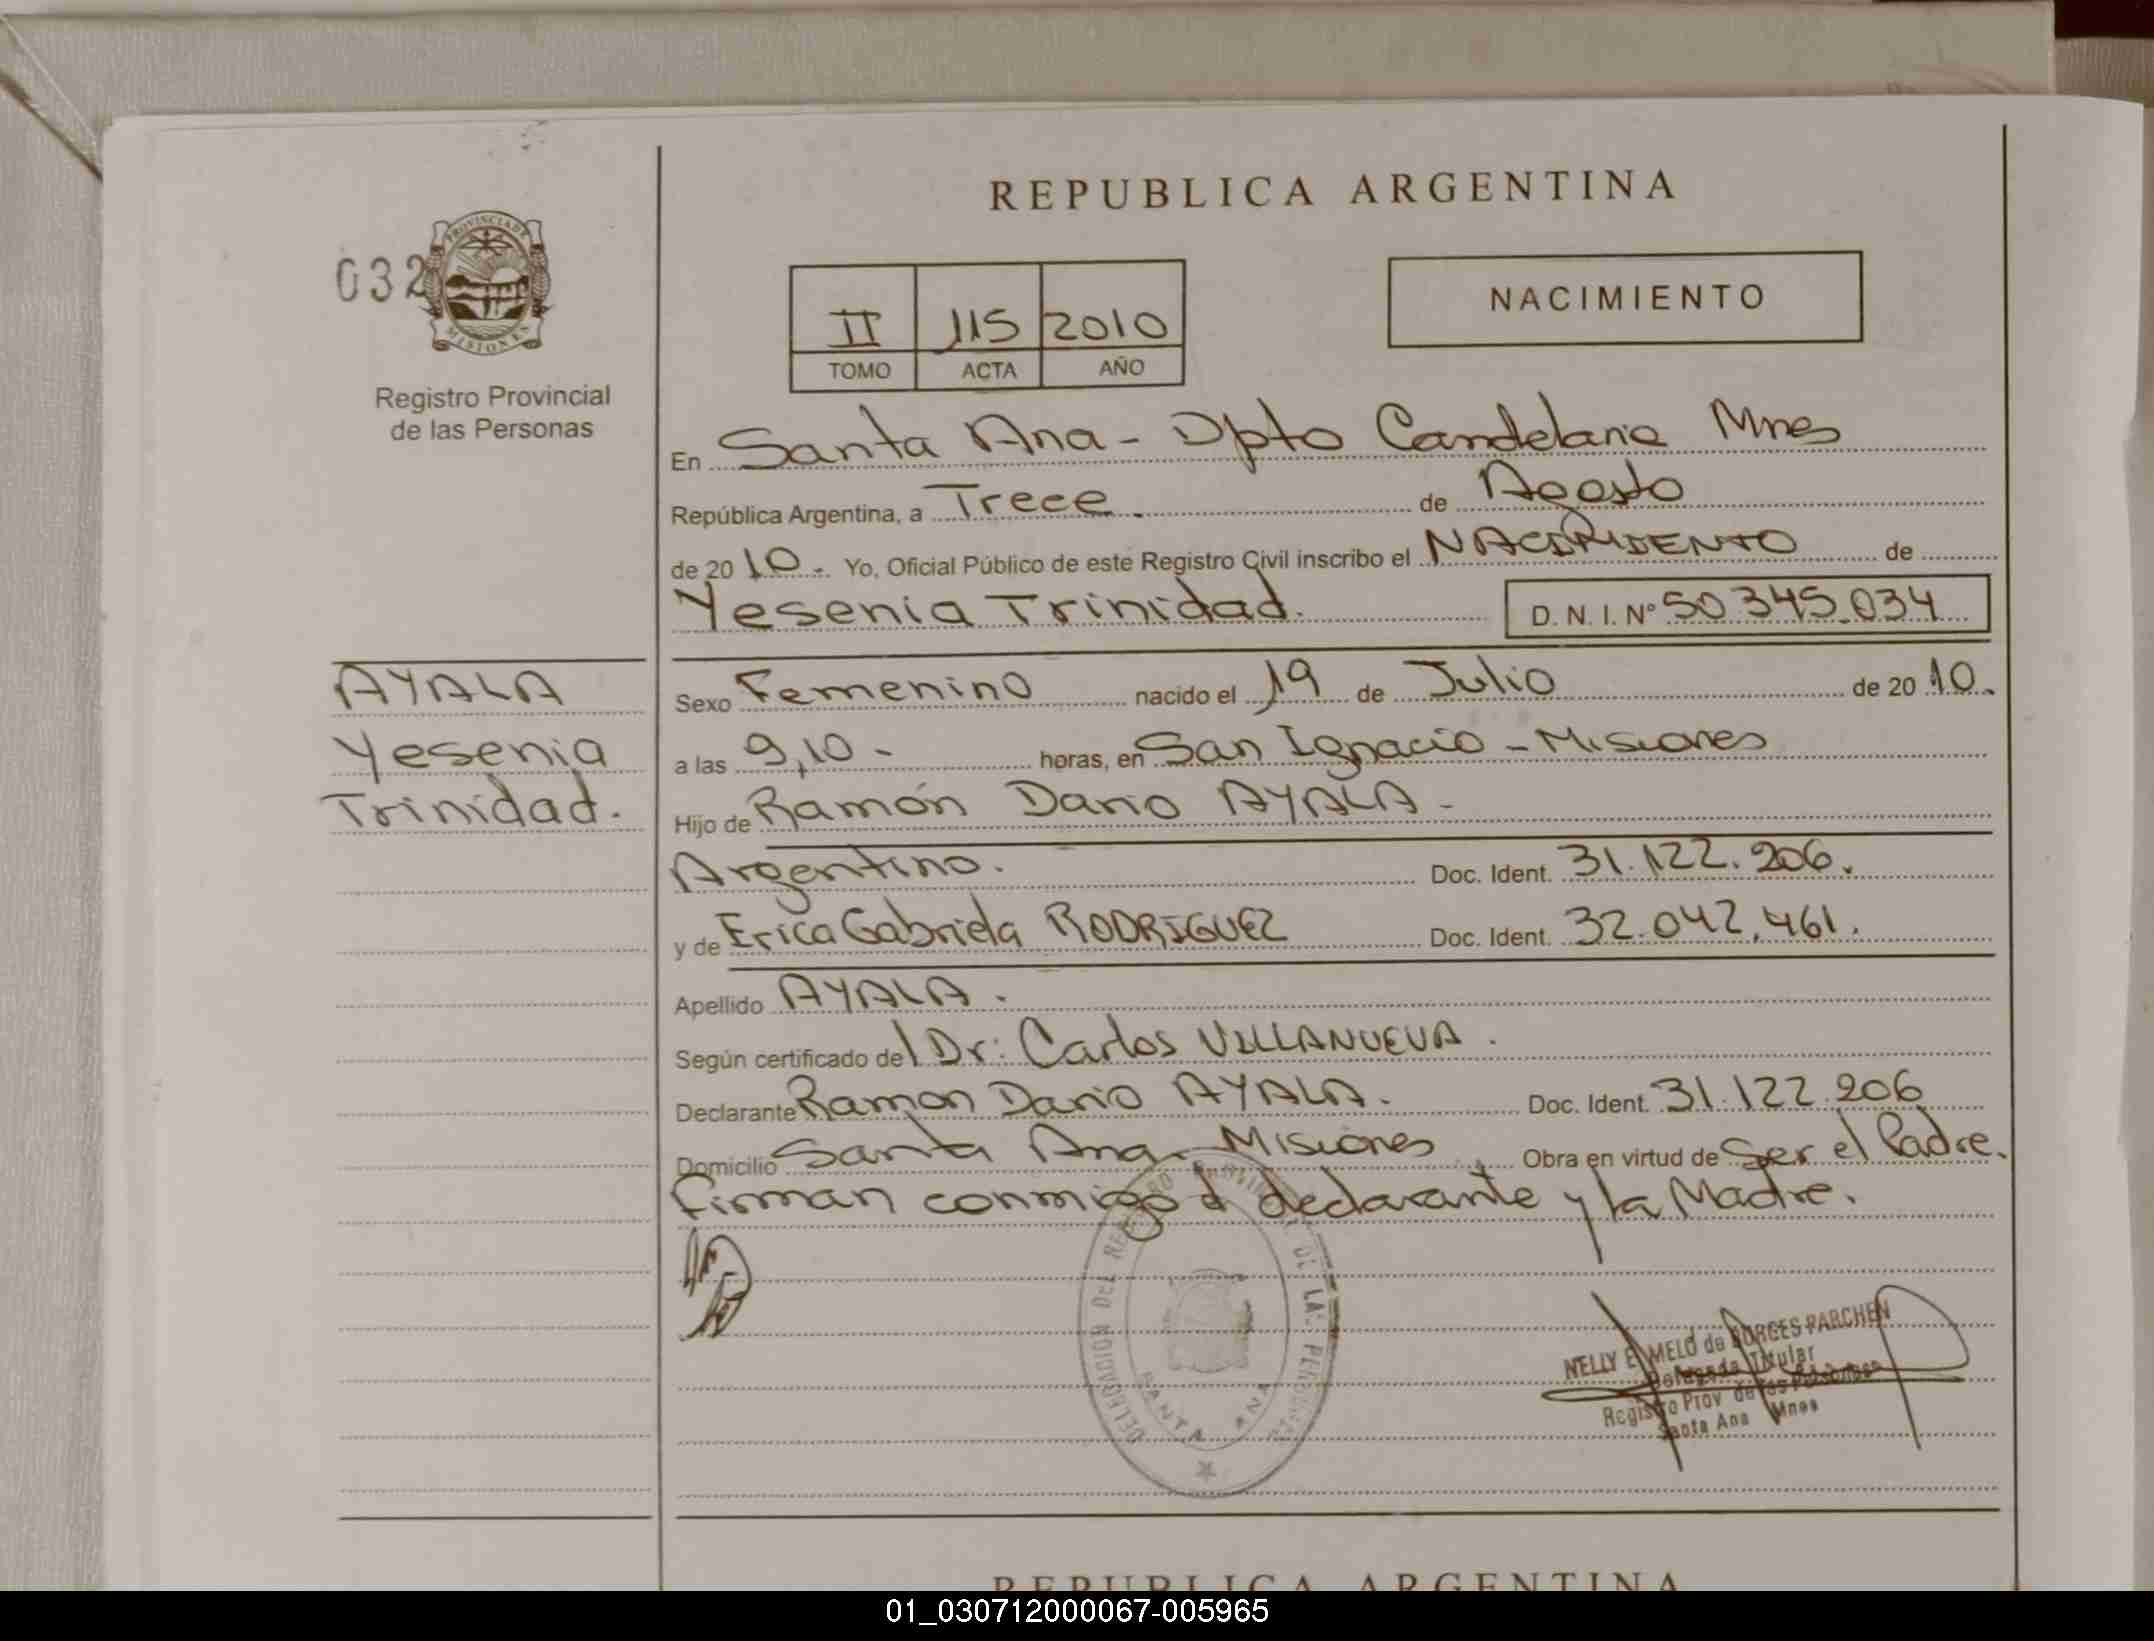 REPUBLICA ARGENTINA
032
PROVINCIA DE
MISIONES
Registro Provincial
de las Personas
II 115 2010
TOMO ACTA AÑO
NACIMIENTO
En Santa Ana - Dpto Candelaria Mnes
República Argentina, a Trece. de Agosto
de 2010. Yo, Oficial Público de este Registro Civil inscribo el NACIMIENTO de
Yesenia Trinidad. D. N. I. Nº 50.345.034
AYALA
Yesenia
Trinidad.
Sexo Femenino nacido el 19 de Julio de 2010.
a las 9,10 - horas, en San Ignacio - Misiones
Hijo de Ramón Dario AYALA -
Argentino. Doc. Ident. 31.122.206.
y de Erica Gabriela RODRIGUEZ Doc. Ident. 32.042.461.
Apellido AYALA.
Según certificado del Dr: Carlos VILLANUEVA.
Declarante Ramon Dario AYALA. Doc. Ident. 31.122.206
Domicilio Santa Ana - Misiones Obra en virtud de Ser el Padre.
Firman conmigo el declarante y la Madre.
DELEGACION DEL REGISTRO PROVINCIAL DE LAS PERSONAS
SANTA ANA
NELLY E. MELO de BORGES PARCHEN
Delegada Titular
Registro Prov de las Personas
Santa Ana Mnes
REPUBLICA ARGENTINA
01_030712000067-005965